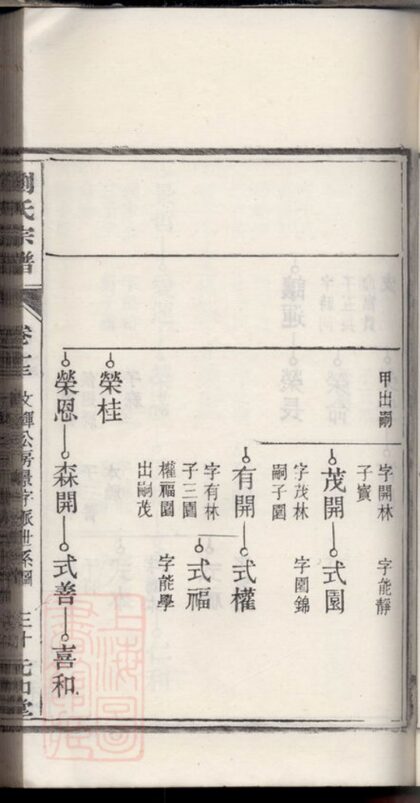 甲出嗣
字開林 字能靜
子實
茂開 式園
字茂林 字園錦
嗣子園
有開 式權
字有林
子三園
權福園
出嗣茂
式福
字能學
榮桂
榮恩 森開 式善 喜和
劉氏宗譜
卷十三 文輝公房景字派世系圖 三十